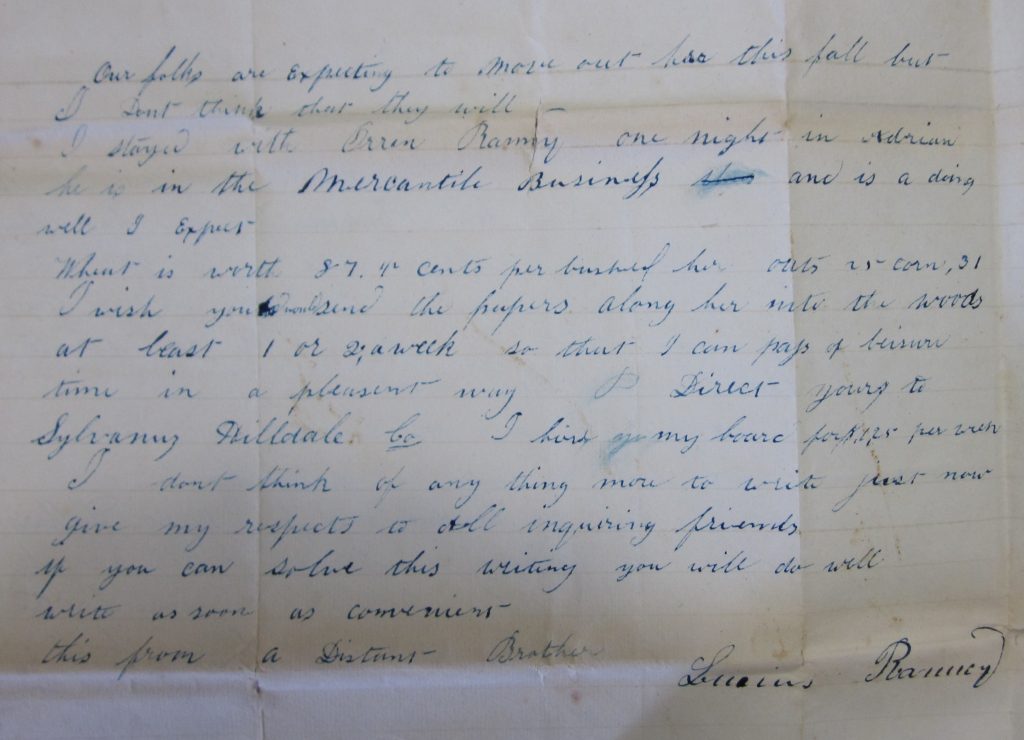 Our folks are Expecting to Move out her this fall but
I Dont think that they will
I stayed with Orren Ranny one night in Adrian
he is in the Mercantile Business and is a doing
well I Expect
Wheat is worth 87. cents per bushel her oats 25 corn, 31
I wish you would send the papers along her into the woods
at least 1 or 2, a week so that I can pass of leisure
time in a pleasent way Direct yours to
Sylvanus Hilldale Co I hire my board for $1,25 per week
I dont think of any thing more to write just now
give my respects to all inquiring friends
if you can solve this writing you will do well
write as soon as convenient
this from a Distant Brother
Lucius Ranney